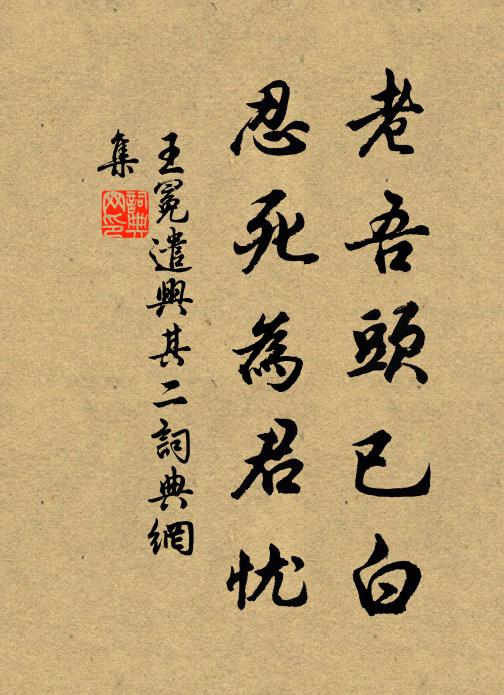 老吾頭已白
忍死為君忧
王冕遣興其二詞典網
集
詞典网印